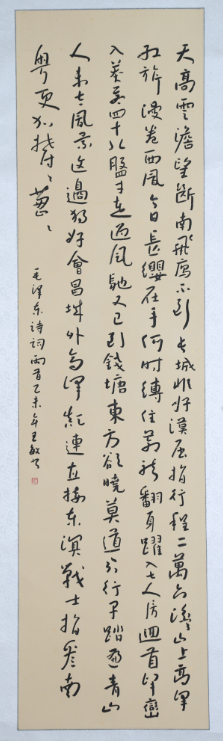 天高雲澹望斷南飛雁不到長城非好漢屈指行程二萬六盤山上高峰
紅旗漫卷西風今日長纓在手何時縛住蒼龍翻身躍入七人房迴首峰巒
入莽蒼四十八盤才走過風馳又已到錢塘東方欲曉莫道君行早踏遍青山
人未老風景這邊獨好會昌城外高峰顛連直接東溟戰士指看南
粵更加鬱〻蔥〻
毛澤東詩詞兩首乙未年王敏